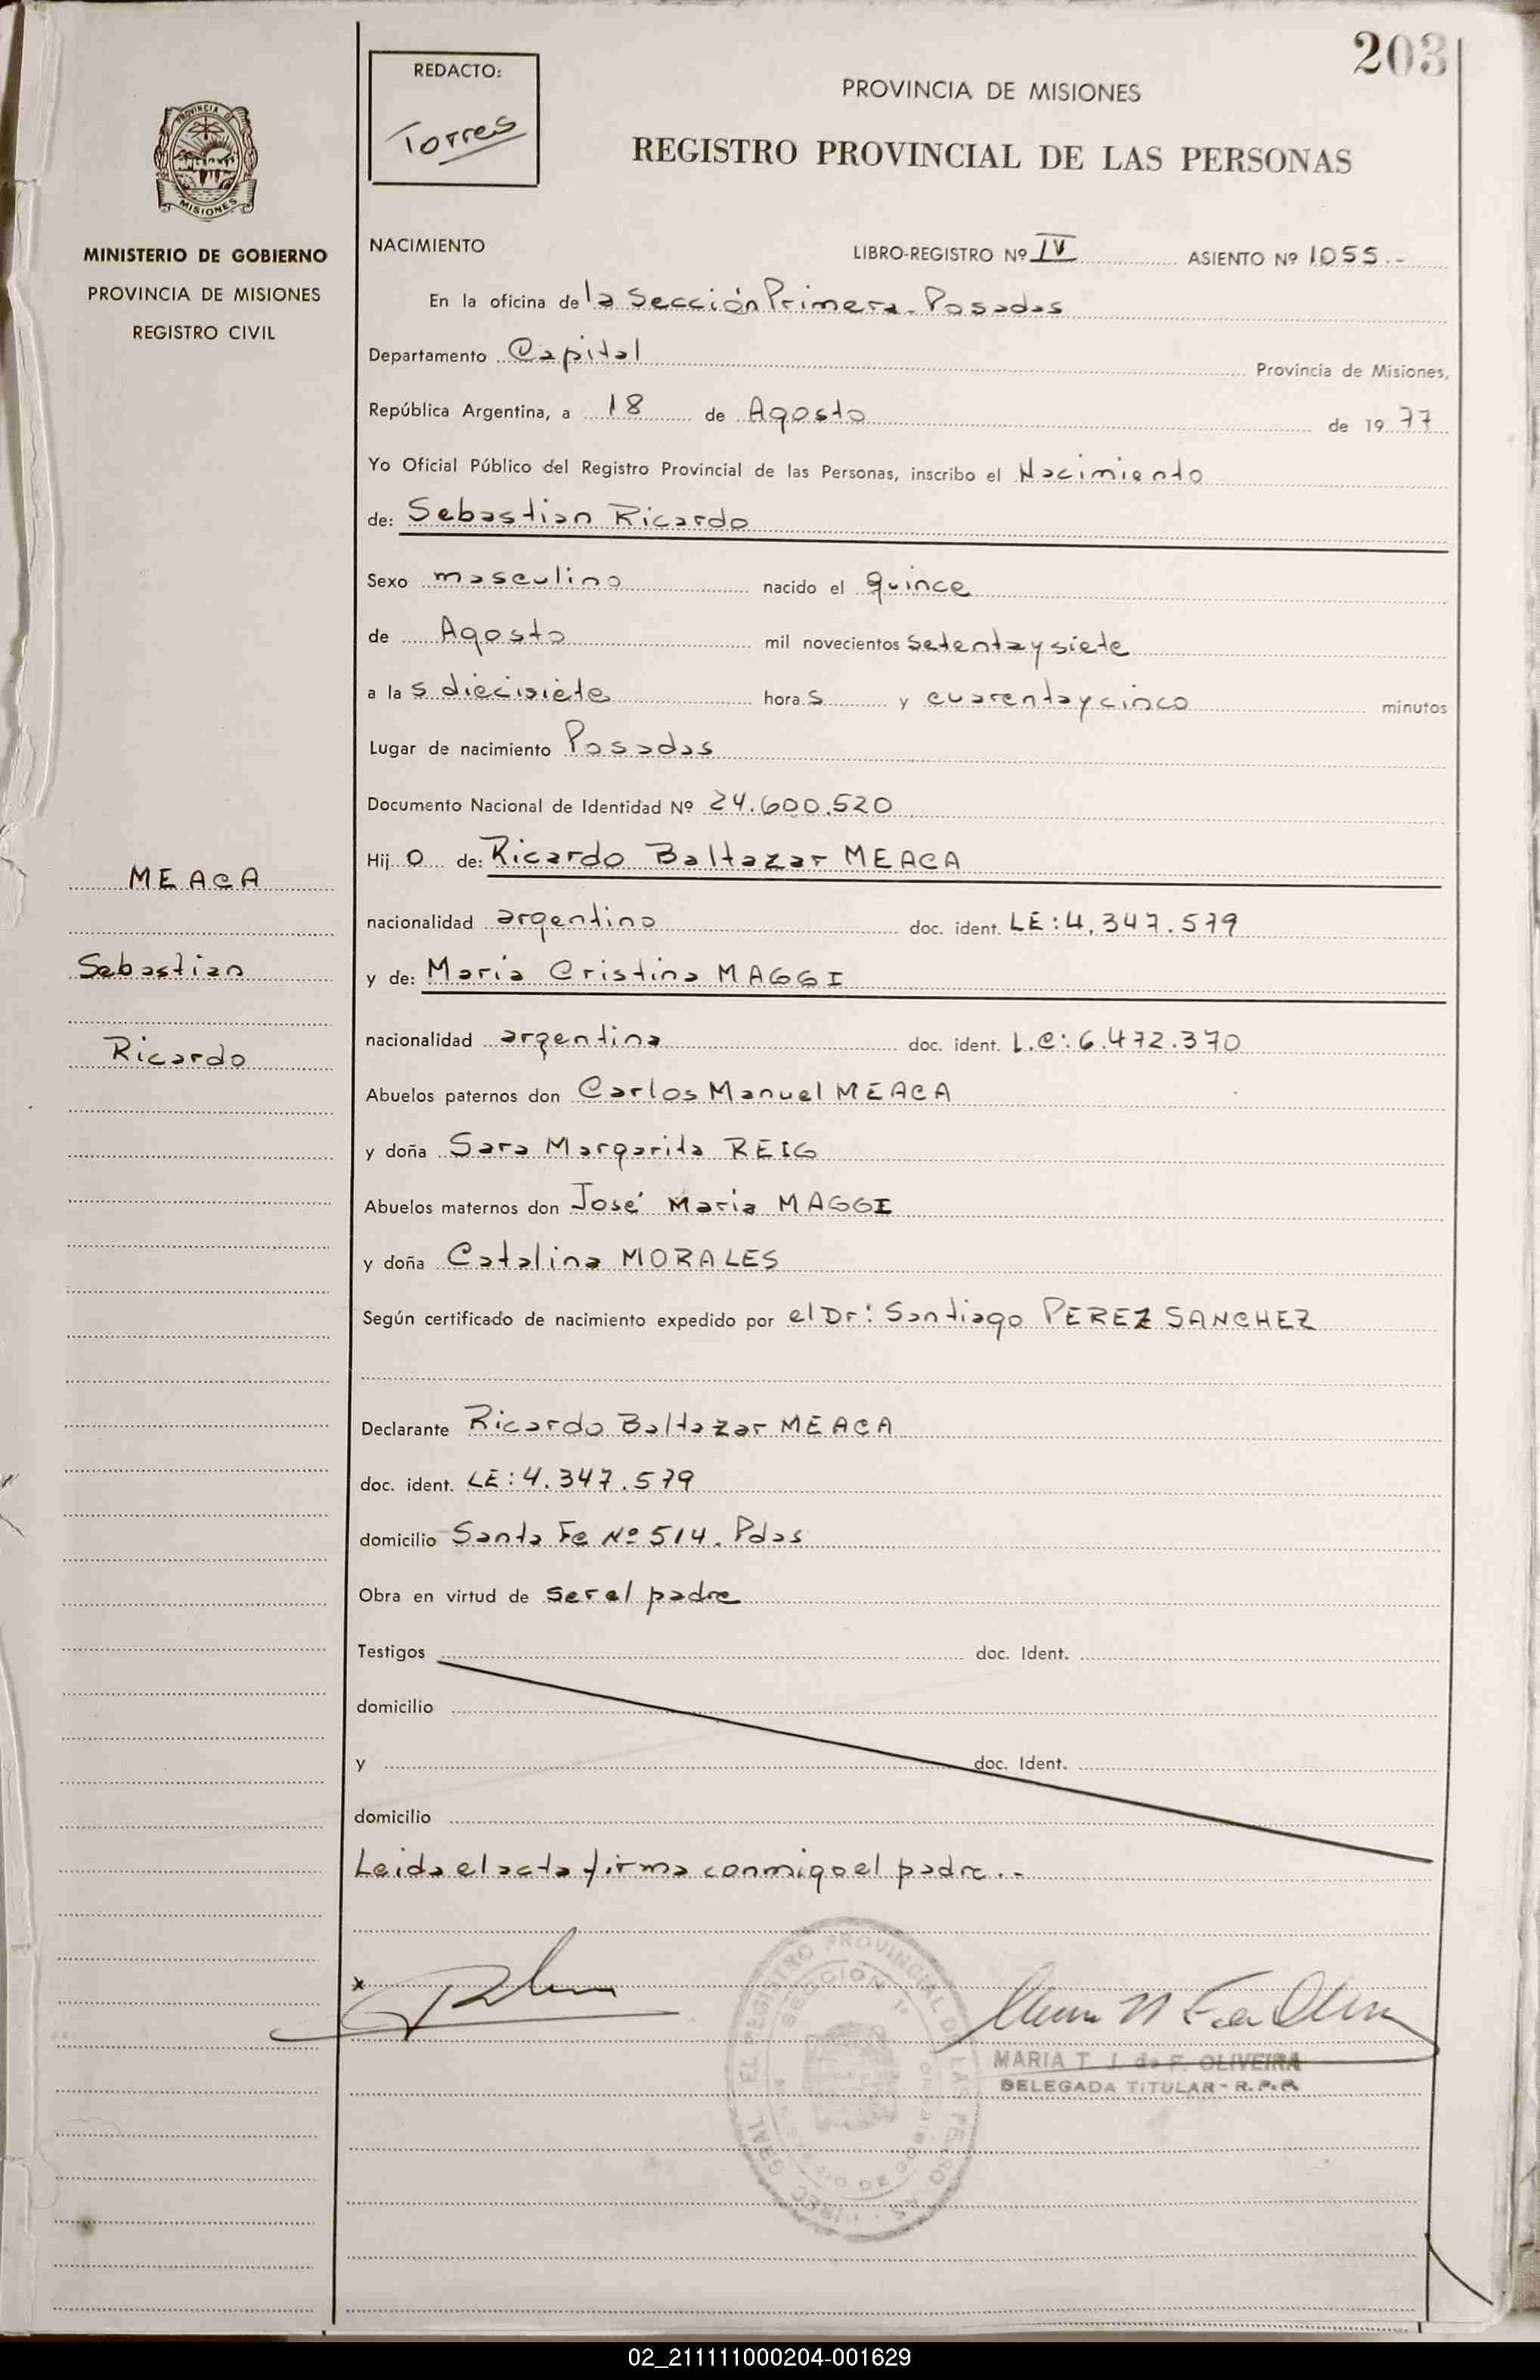 203
REDACTO:
Torres
PROVINCIA DE MISIONES
REGISTRO PROVINCIAL DE LAS PERSONAS
PROVINCIA DE
MISIONES
MINISTERIO DE GOBIERNO
PROVINCIA DE MISIONES
REGISTRO CIVIL
NACIMIENTO LIBRO-REGISTRO Nº IV ASIENTO Nº 1055.-
En la oficina de la Sección Primera - Posadas
Departamento Capital Provincia de Misiones,
República Argentina, a 18 de Agosto de 1977
Yo Oficial Público del Registro Provincial de las Personas, inscribo el Nacimiento
de: Sebastian Ricardo
Sexo masculino nacido el quince
de Agosto mil novecientos setenta y siete
a las diecisiete horas y cuarenta y cinco minutos
Lugar de nacimiento Posadas
Documento Nacional de Identidad Nº 24.600.520
Hijo de: Ricardo Baltazar MEACA
MEACA
nacionalidad argentino doc. ident. LE: 4.347.579
Sebastian
y de: Maria Cristina MAGGI
nacionalidad argentina doc. ident. L.C: 6.472.370
Ricardo
Abuelos paternos don Carlos Manuel MEACA
y doña Sara Margarita REIG
Abuelos maternos don José Maria MAGGI
y doña Catalina MORALES
Según certificado de nacimiento expedido por el Dr: Santiago PEREZ SANCHEZ
Declarante Ricardo Baltazar MEACA
doc. ident. LE: 4.347.579
domicilio Santa Fe Nº 514. Pdas
Obra en virtud de ser el padre
Testigos doc. Ident.
domicilio
y doc. Ident.
domicilio
Leida el acta firma conmigo el padre.-
x
SECCION 1ª
MARIA T. J. de F. OLIVEIRA
DELEGADA TITULAR - R.P.P.
02_211111000204-001629